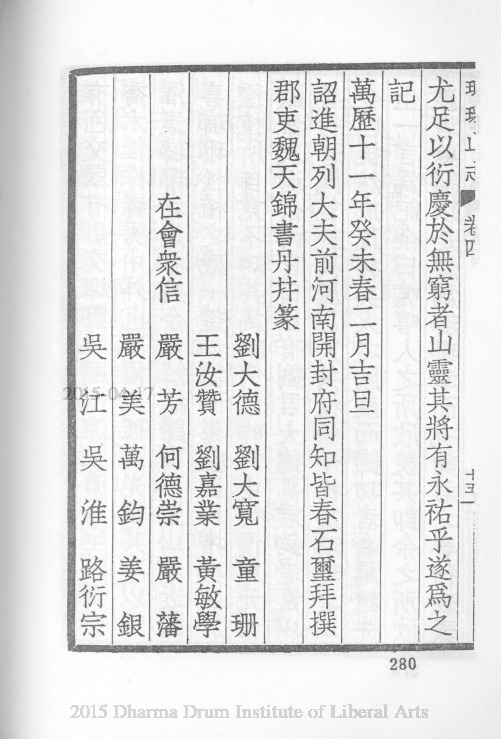 琅琊山志 卷四
尤足以衍慶於無窮者山靈其將有永祐乎遂爲之
記
萬歷十一年癸未春二月吉旦
詔進朝列大夫前河南開封府同知皆春石璽拜撰
郡吏魏天錦書丹幷篆
劉大德 劉大寬 童珊
王汝贊 劉嘉業 黃敏學
在會衆信 嚴芳 何德崇 嚴藩
嚴美 萬鈞 姜銀
吳江 吳淮 路衍宗
280
2015-04-17
2015 Dharma Drum Institute of Liberal Arts